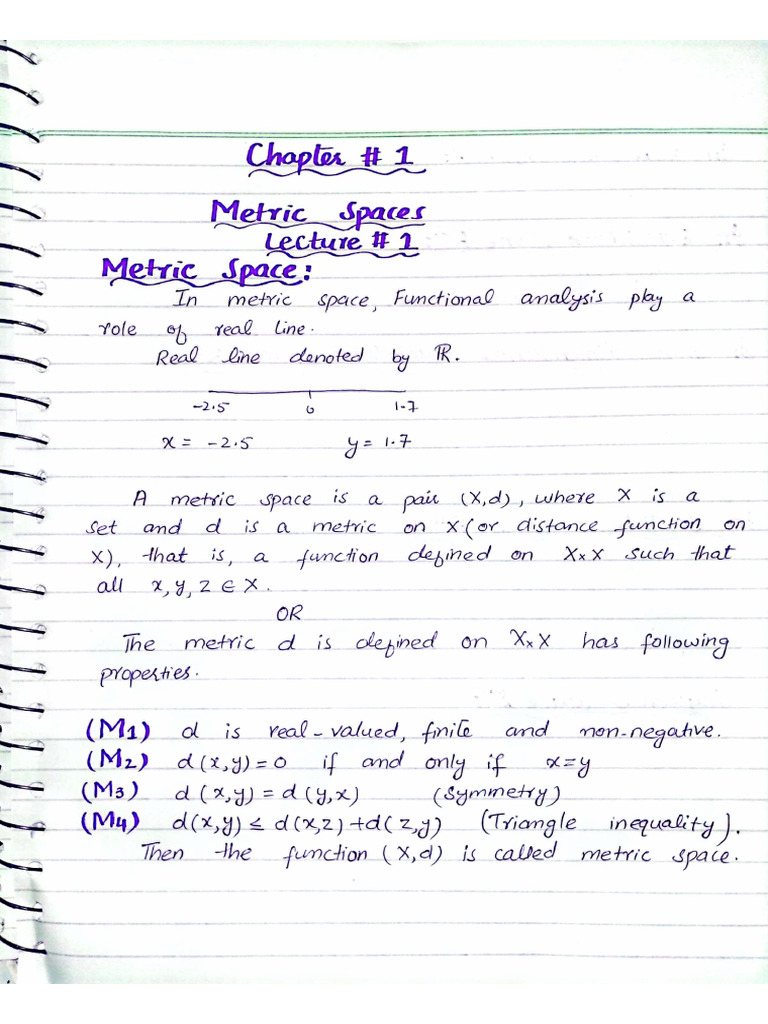 Chapter # 1
Metric Spaces
Lecture # 1
Metric Space:
In metric space, Functional analysis play a
role of real line.
Real line denoted by ℝ.
-2.5 0 1.7
x = -2.5 y = 1.7
A metric space is a pair (X,d), where X is a
set and d is a metric on X (or distance function on
X), that is, a function defined on X×X such that
all x, y, z ∈ X.
OR
The metric d is defined on X×X has following
properties.
(M1) d is real-valued, finite and non-negative.
(M2) d(x,y)=0 if and only if x=y
(M3) d(x,y) = d(y,x) (Symmetry)
(M4) d(x,y) ≤ d(x,z)+d(z,y) (Triangle inequality).
Then the function (X,d) is called metric space.